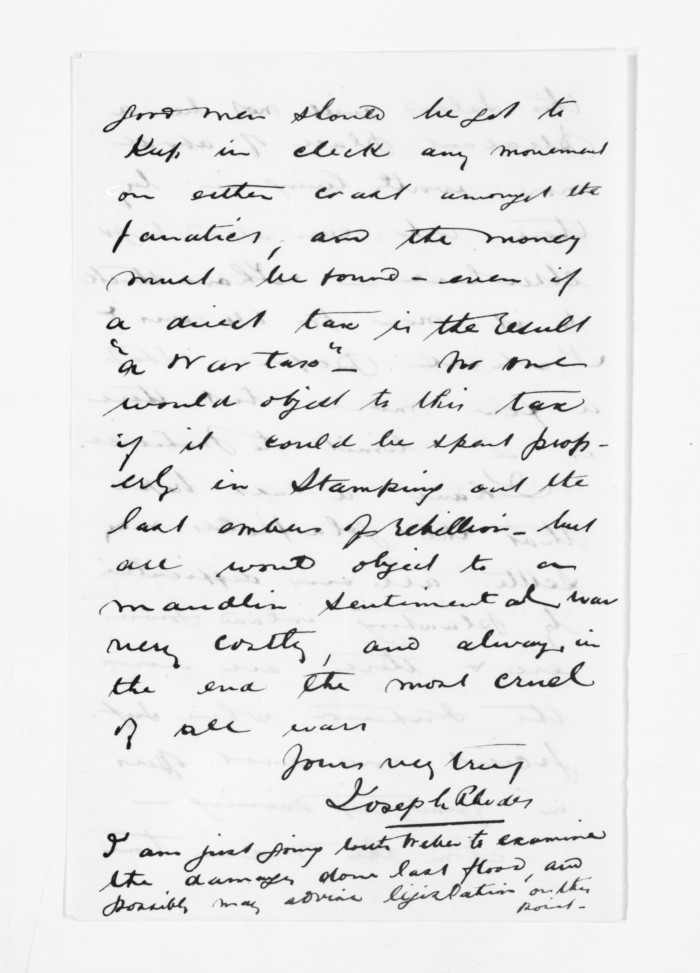 good men should be got to
Keep in check any movement
on either coast amongst the
fanatics, and the money
must be found - even if
a direct tax is the result
"a War tax" - No one
would object to this tax
if it could be spent prop-
erly in Stamping out the
last embers of Rebellion - but
all would object to a
maudlin sentimental war
very costly, and always in
the end the most cruel
of all wars
Yours very truly
Joseph Rhodes
I am just going with Weber to examine
the damages done last flood, and
possibly may advise legislation on this
point -